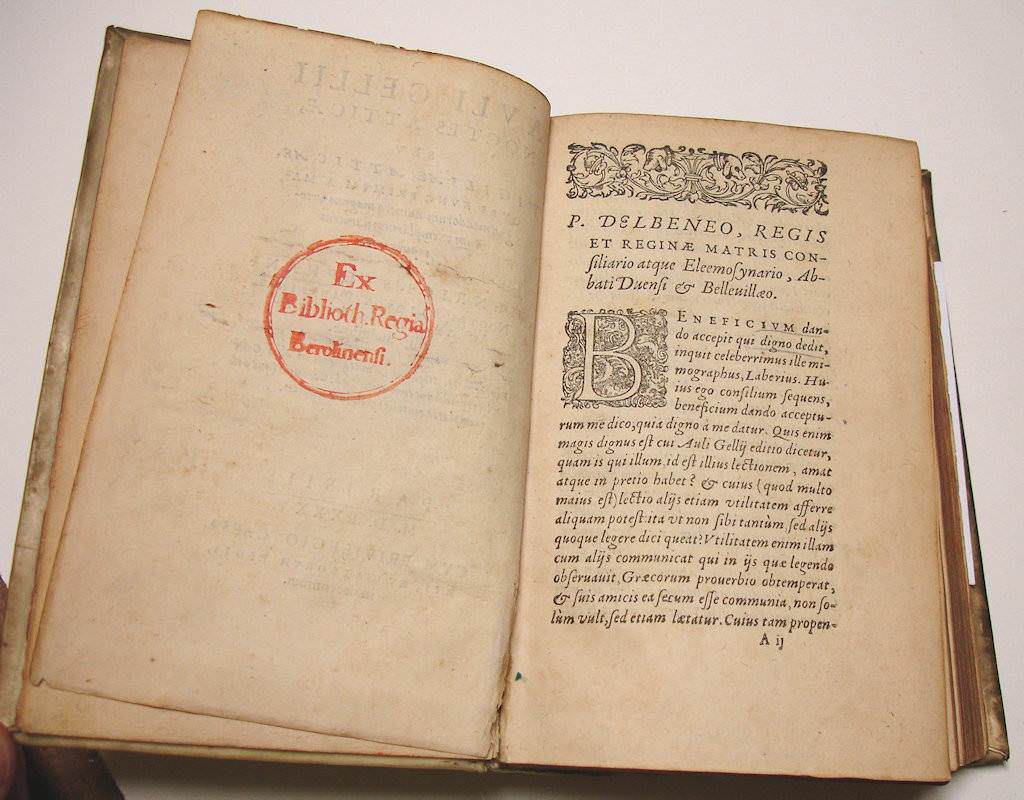 Ex
Biblioth. Regia
Berolinensi.
P. DELBENEO, REGIS
ET REGINÆ MATRIS CON-
siliario atque Eleemosynario, Ab-
bati Duensi & Belleuillæo.
BENEFICIVM dan-
do accepit qui digno dedit,
inquit celeberrimus ille mi-
mographus, Laberius. Hu-
ius ego consilium sequens,
beneficium dando acceptu-
rum me dico, quia digno à me datur. Quis enim
magis dignus est cui Auli Gellij editio dicetur,
quam is qui illum, id est illius lectionem, amat
atque in pretio habet? & cuius (quod multo
maius est) lectio alijs etiam vtilitatem afferre
aliquam potest: ita vt non sibi tantùm, sed alijs
quoque legere dici queat? Vtilitatem enim illam
cum alijs communicat qui in ijs quæ legendo
obseruauit, Græcorum prouerbio obtemperat,
& suis amicis ea secum esse communia, non so-
lùm vult, sed etiam lætatur. Cuius tam propen-
A ij
AVLI GELLII
NOCTES ATTICÆ,